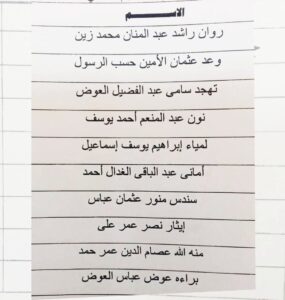 الاســـم
روان راشد عبد المنان محمد زين
وعد عثمان الأمين حسب الرسول
تهجد سامى عبد الفضيل العوض
نون عبد المنعم أحمد يوسف
لمياء إبراهيم يوسف إسماعيل
أمانى عبد الباقى الغدال أحمد
سندس منور عثمان عباس
إيثار نصر عمر على
منه الله عصام الدين عمر حمد
براءه عوض عباس العوض